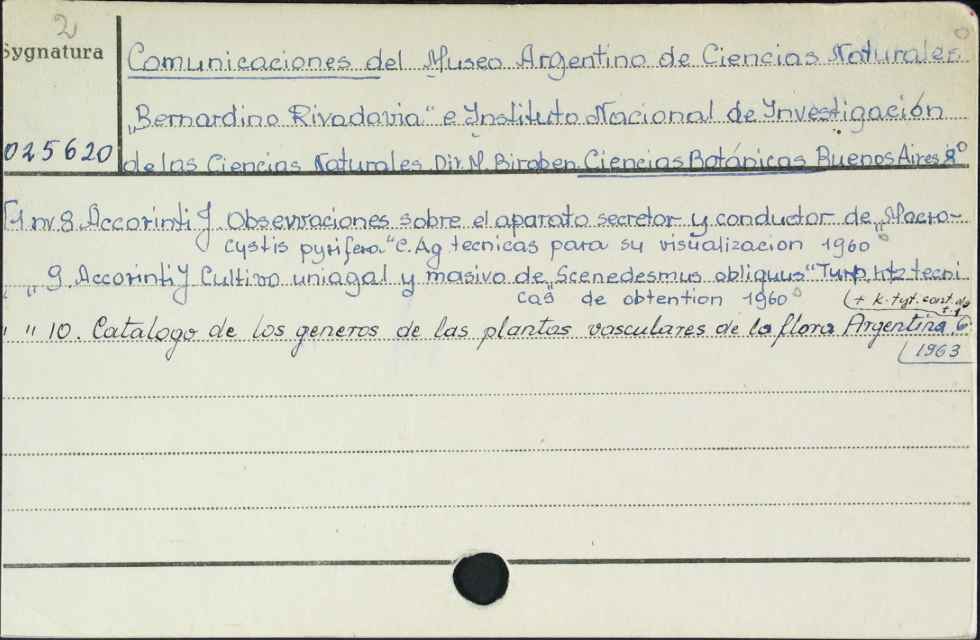 2
Sygnatura
025620
Comunicaciones del Museo Argentino de Ciencias Naturales
„Bernardino Rivadavia" e Instituto Nacional de Investigación
de las Ciencias Naturales. Dir. M. Biraben. Ciencias Botánicas Buenos Aires 8°
T.1 nr 8. Accorinti J. Observaciones sobre el aparato secretor y conductor de „Macro-
cystis pyrifera" C. Ag tecnicas para su visualizacion 1960
" " 9. Accorinti J Cultivo uniagal y masivo de „Scenedesmus obliquus" Turp. Ktz tecni
cas de obtention 1960
" " 10. Catalogo de los generos de las plantas vasculares de la flora Argentina. C.
(+ k. tyt. cont. do
t. 1
1963